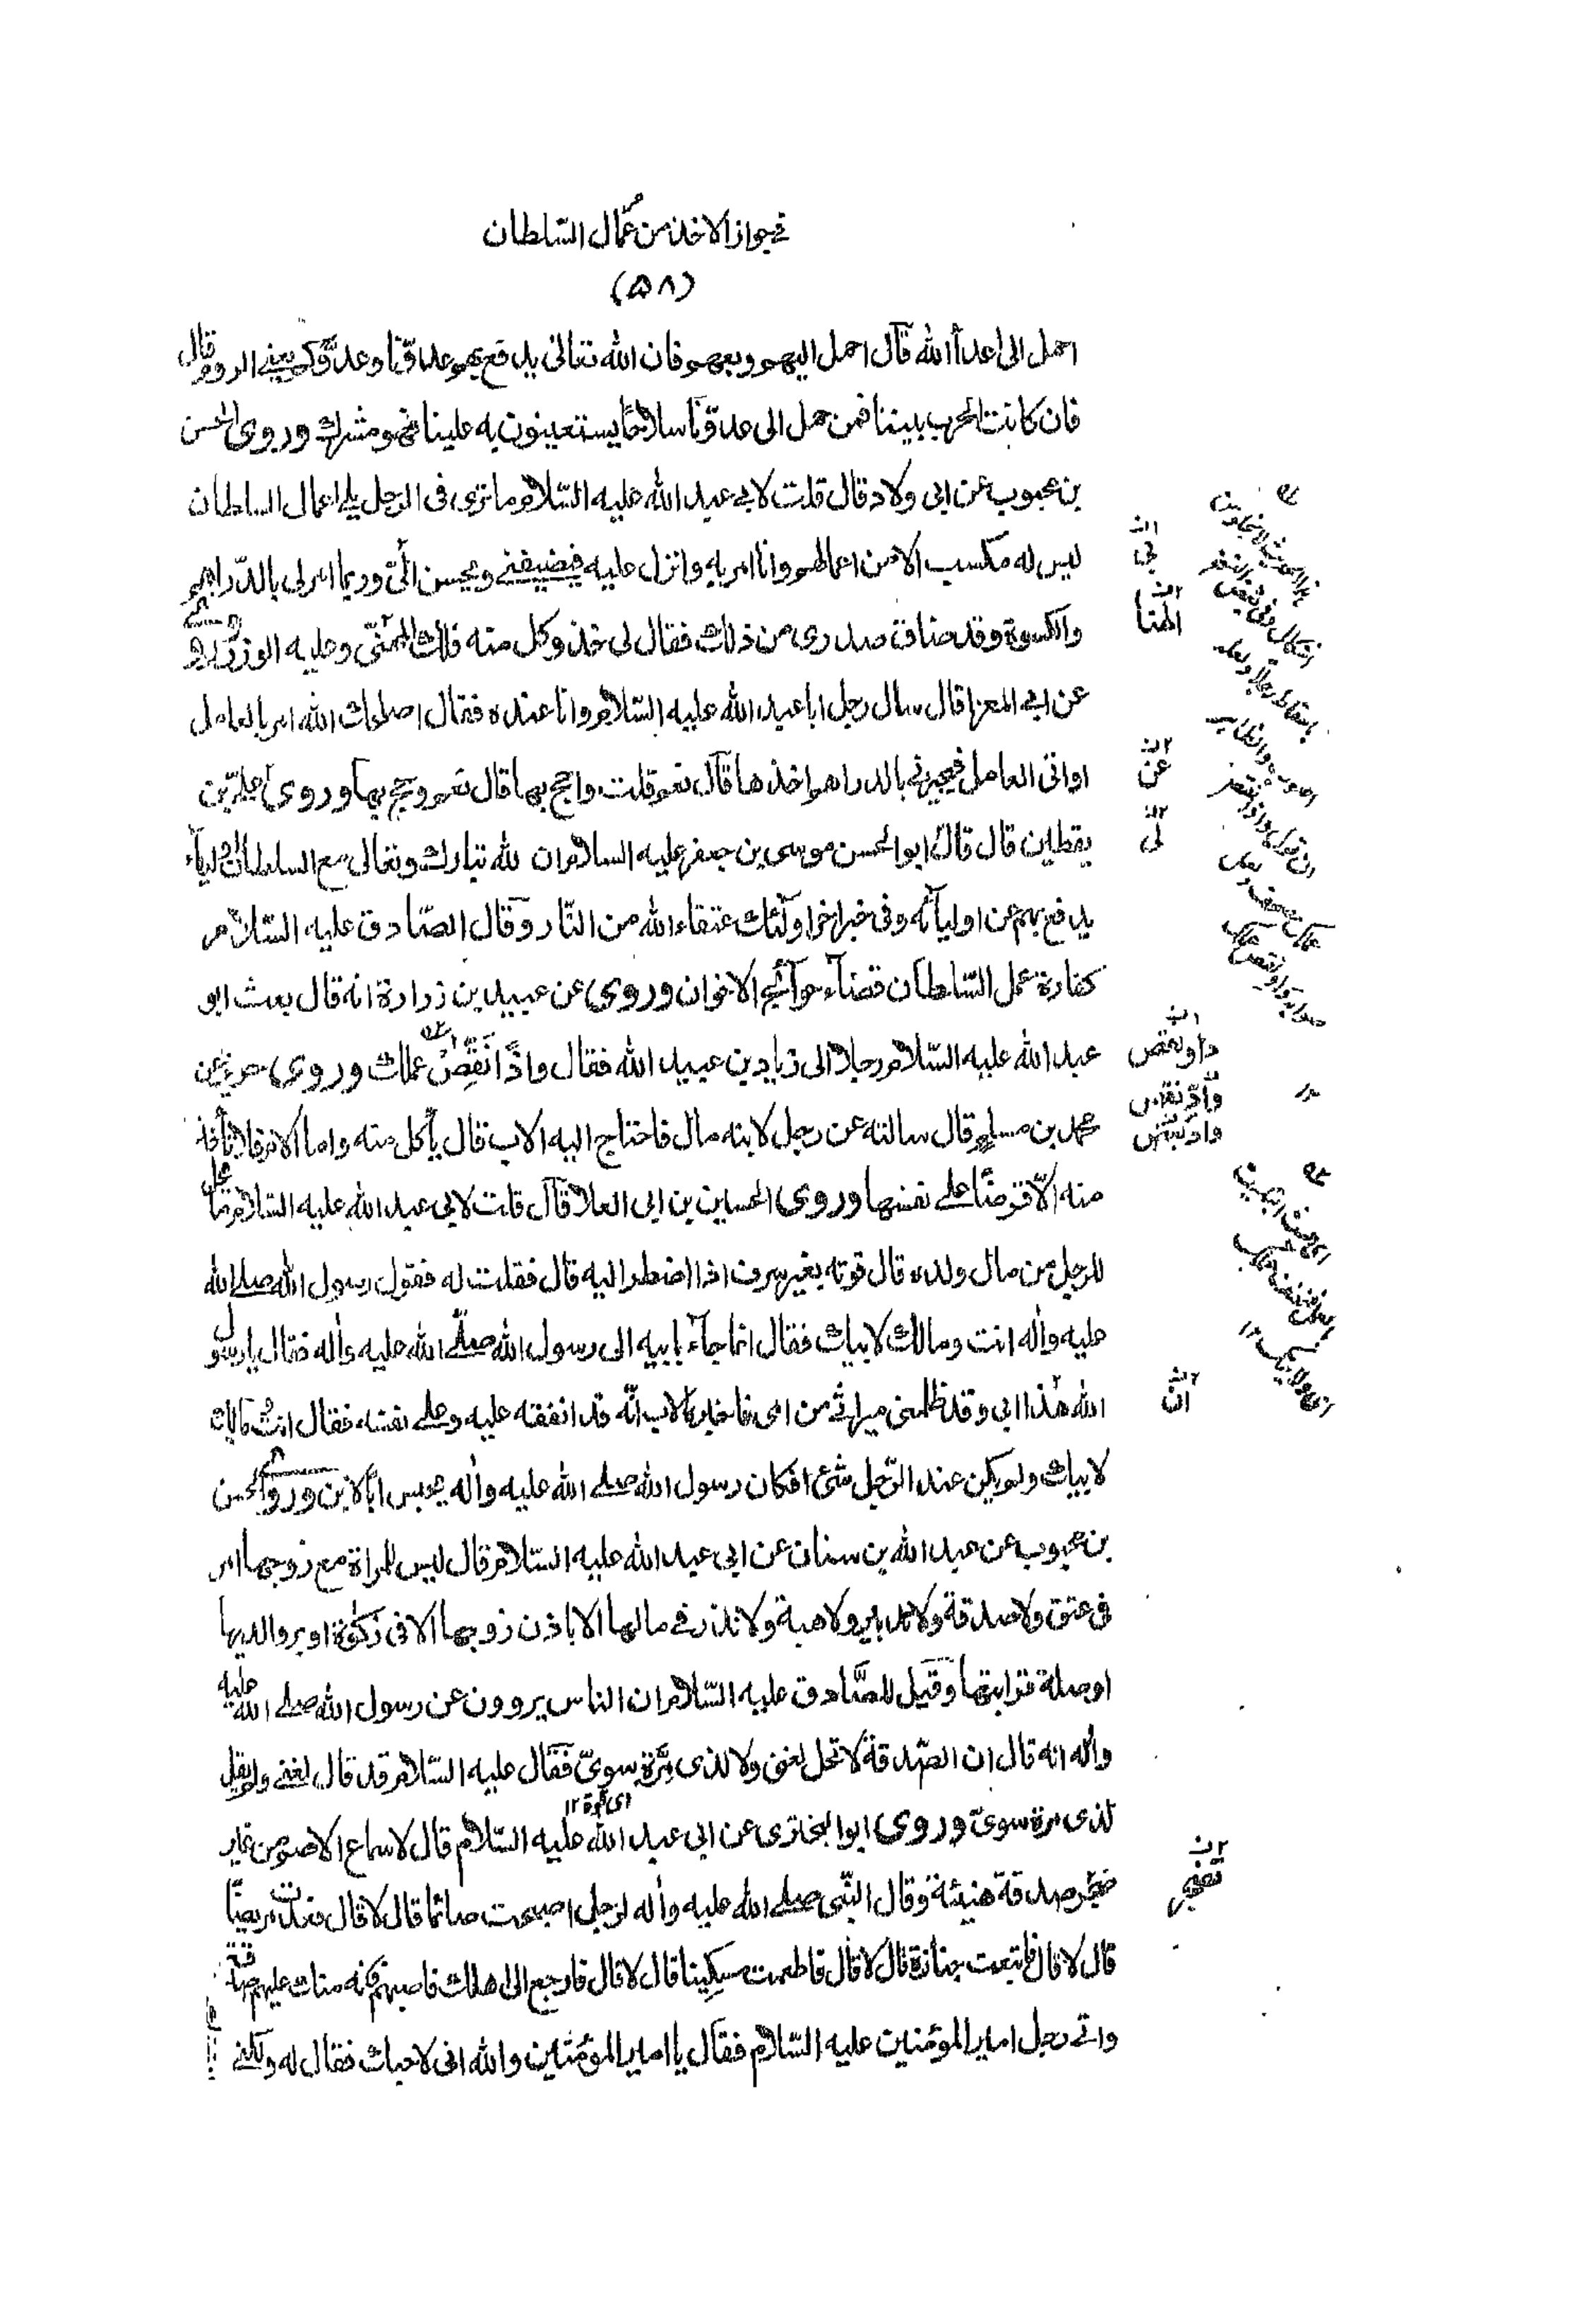 في جواز الاخذ من عمّال السّلطان
(۵۸)
احمل الى اعدأ الله قال احمل اليهم وبعهم فان الله تعالى يدفع بهم عدوّنا وعدوّكم يعنى الروم قال
فان كانت الحرب بيننا فمن حمل الى عدوّنا سلاحًا يستعينون به علينا فهو مشرك وروى الحسن
بن محبوب عن ابى ولاد قال قلت لابى عبد الله عليه السّلام ما ترى فى الرجل يلى اعمال السلطان
ليس له مكسب الا من اعمالهم وانا امر به وانزل عليه فيضيفنى ويحسن الىّ وربما امر لى بالدّراهم
والكسوة وقد ضاق صدرى من ذلك فقال لى خذ وكل منه فلك المهنّى وعليه الوزر وروى
عن ابى المعزا قال سال رجل ابا عبد الله عليه السّلام وانا عنده فقال اصلحك الله امر بالعامل
او اتى العامل فيجيزنى بالدراهم اخذها قال نعم قلت واحج بها قال نعم وحج بها وروى علىّ بن
يقطين قال قال لى ابو الحسن موسى بن جعفر عليه السلام ان لله تبارك وتعالى مع السلطان اوليآء
يدفع بهم عن اوليآئه وفى خبر اخر اولٓئك عتقاء الله من النّار وقال الصّادق عليه السّلام
كفارة عمل السّلطان قضآء حوآئج الاخوان وروى عن عبيد بن زرارة انه قال بعث ابو
عبد الله عليه السّلام رجلا الى زياد بن عبيد الله فقال واذًا نقص عملك وروى حريز عن
محمد بن مسلم قال سالته عن رجل لابنه مال فاحتاج اليه الاب قال يأكل منه واما الام فلا تأخذ
منه الّا قرضًا على نفسها وروى الحسين بن ابى العلا قال قلت لابى عبد الله عليه السّلام ما يحل
للرجل من مال ولده قال قوته بغير سرف اذا اضطر اليه قال فقلت له فقول رسول الله صلى الله
عليه واٰله انت ومالك لابيك فقال انما جآء بابيه الى رسول الله صلّى الله عليه واٰله فقال يا رسول
الله هٰذا ابى وقد ظلمنى ميراثى من امى فاخبره الاب انّه قد انفقه عليه وعلى نفسه فقال انت ومالك
لابيك ولم يكن عند الرّجل شئ افكان رسول الله صلى الله عليه واٰله يحبس ابًا لابن وروى الحسن
بن محبوب عن عبد الله بن سنان عن ابى عبد الله عليه السّلام قال ليس للمراة مع زوجها امر
فى عتق ولا صدقة ولا تدبير ولا هبة ولا نذر فى مالها الا باذن زوجها الا فى زكٰوة او بر والديها
او صلة قرابتها وقيل للصّادق عليه السّلام ان الناس يروون عن رسول الله صلى الله عليه
واٰله انه قال ان الصّدقة لا تحل لغنى ولا لذى مرّة سوىّ فقال عليه السّلام قد قال لغنى ولم يقل
اى قوة ۱۲
لذى مرة سوىّ وروى ابو البخترى عن ابى عبد الله عليه السّلام قال لاسماع الاصم من غير
ضجر صدقة هنيئة وقال النّبى صلى الله عليه واٰله لرجل اصبحت صائما قال لا قال فعدت مريضًا
قال لا قال فاتبعت جنازة قال لا قال فاطعمت مسكينا قال لا قال فارجع الى اهلك فاصبهم فانه منك عليهم صدقة
واتى رجل امير المؤمنين عليه السّلام فقال يا امير المؤمنين والله انى لاحبك فقال له ولكنى
المهنا
عن
لى
ان
تضجر